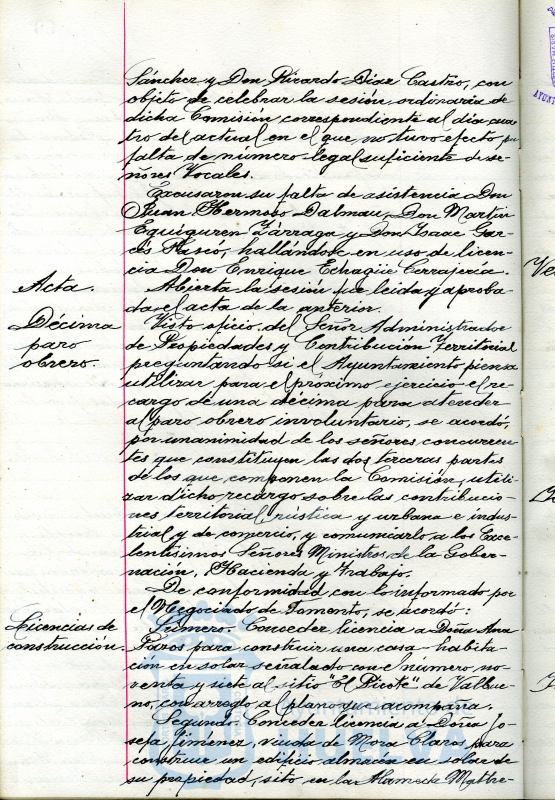 Sánchez y Don Ricardo Díaz Castro, con
objeto de celebrar la sesión ordinaria de
dicha Comisión correspondiente al dia cua
tro del actual en el que no tuvo efecto por
falta de número legal suficiente de se-
ñores Vocales.
Excusaron su falta de asistencia Don
Juan Hermoso Dalmau, Don Martín
Eguiguren Zárraga y Don Isaac Gar-
cés Mascó, hallándose en uso de licen-
cia Don Enrique Echagüe Cerrajería.
Acta.
Abierta la sesión fue leida y aproba
da el acta de la anterior.
Décima
paro
obrero.
Visto oficio del Señor Administrador
de Propiedades y Contribución Territorial
preguntando si el Ayuntamiento piensa
utilizar para el próximo ejercicio el re-
cargo de una décima para atender
al paro obrero involuntario, se acordó,
por unanimidad de los señores concurren
tes que constituyen las dos terceras partes
de los que componen la Comisión, utili-
zar dicho recargo sobre las contribucio-
nes territorial, rústica y urbana e indus-
trial y de comercio, y comunicarlo a los Exce-
lentísimos Señores Ministros de la Gober-
nación, Hacienda y Trabajo.
De conformidad con lo informado por
el Negociado de Fomento, se acordó:
Licencias de
construcción.
Primero. Conceder licencia a Doña Ana
Paros para construir una casa-habita-
ción en solar señalado con el número no-
venta y siete al sitio "El Picote" de Valbue-
no, con arreglo al plano que acompaña.
Segundo: Conceder licencia a Doña Jo-
sefa Jiménez, viuda de Mora Claros para
construir un edificio almacén en solar de
su propiedad, sito en la Alameda
HUELVA